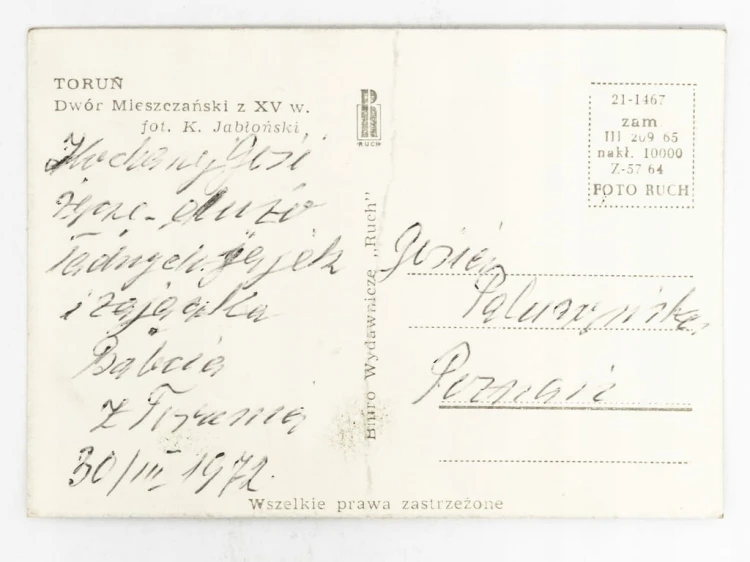 TORUŃ
Dwór Mieszczański z XV w.
fot. K. Jabłoński
Kochanej Gosi
życzę dużo
ładnych jajek
i zajączka
Babcia
z Torunia
30/III 1972.
R
RUCH
Biuro Wydawnicze „Ruch”
21-1467
zam.
III 209 65
nakł. 10000
Z-57 64
FOTO RUCH
Poznań
Wszelkie prawa zastrzeżone